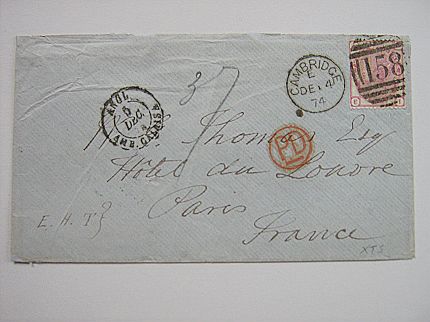 CAMBRIDGE
E
DE 4
74
158
ANGL.
5
DEC.
AMB. CALAIS A
37
PD
Thomas Esq
Hôtel du Louvre
Paris
France
E. H. T
XTS